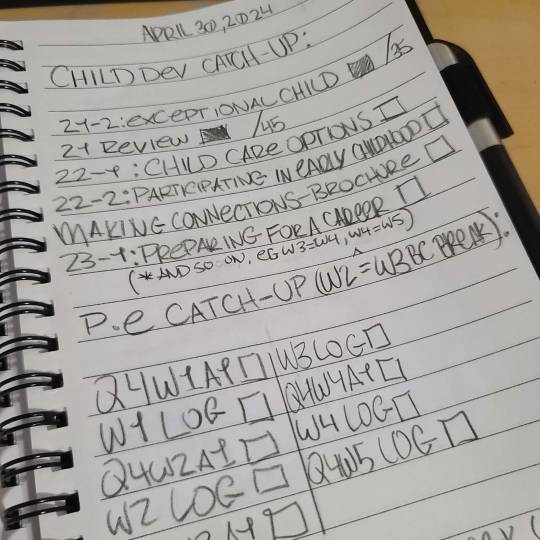 APRIL 30, 2024
CHILD DEV CATCH-UP:
21-2: EXCEPTIONAL CHILD /35
21 REVIEW /45
22-1: CHILD CARE OPTIONS
22-2: PARTICIPATING IN EARLY CHILDHOOD
MAKING CONNECTIONS-BROCHURE
23-1: PREPARING FOR A CAREER
(* AND SO ON, EG W3=W4, W4=W5)
P.E CATCH-UP (W2=W3 BC BREAK):
Q4W1A1
W1 LOG
Q4W2A1
W2 LOG
W3 LOG
Q4W4A1
W4 LOG
Q4W5 LOG